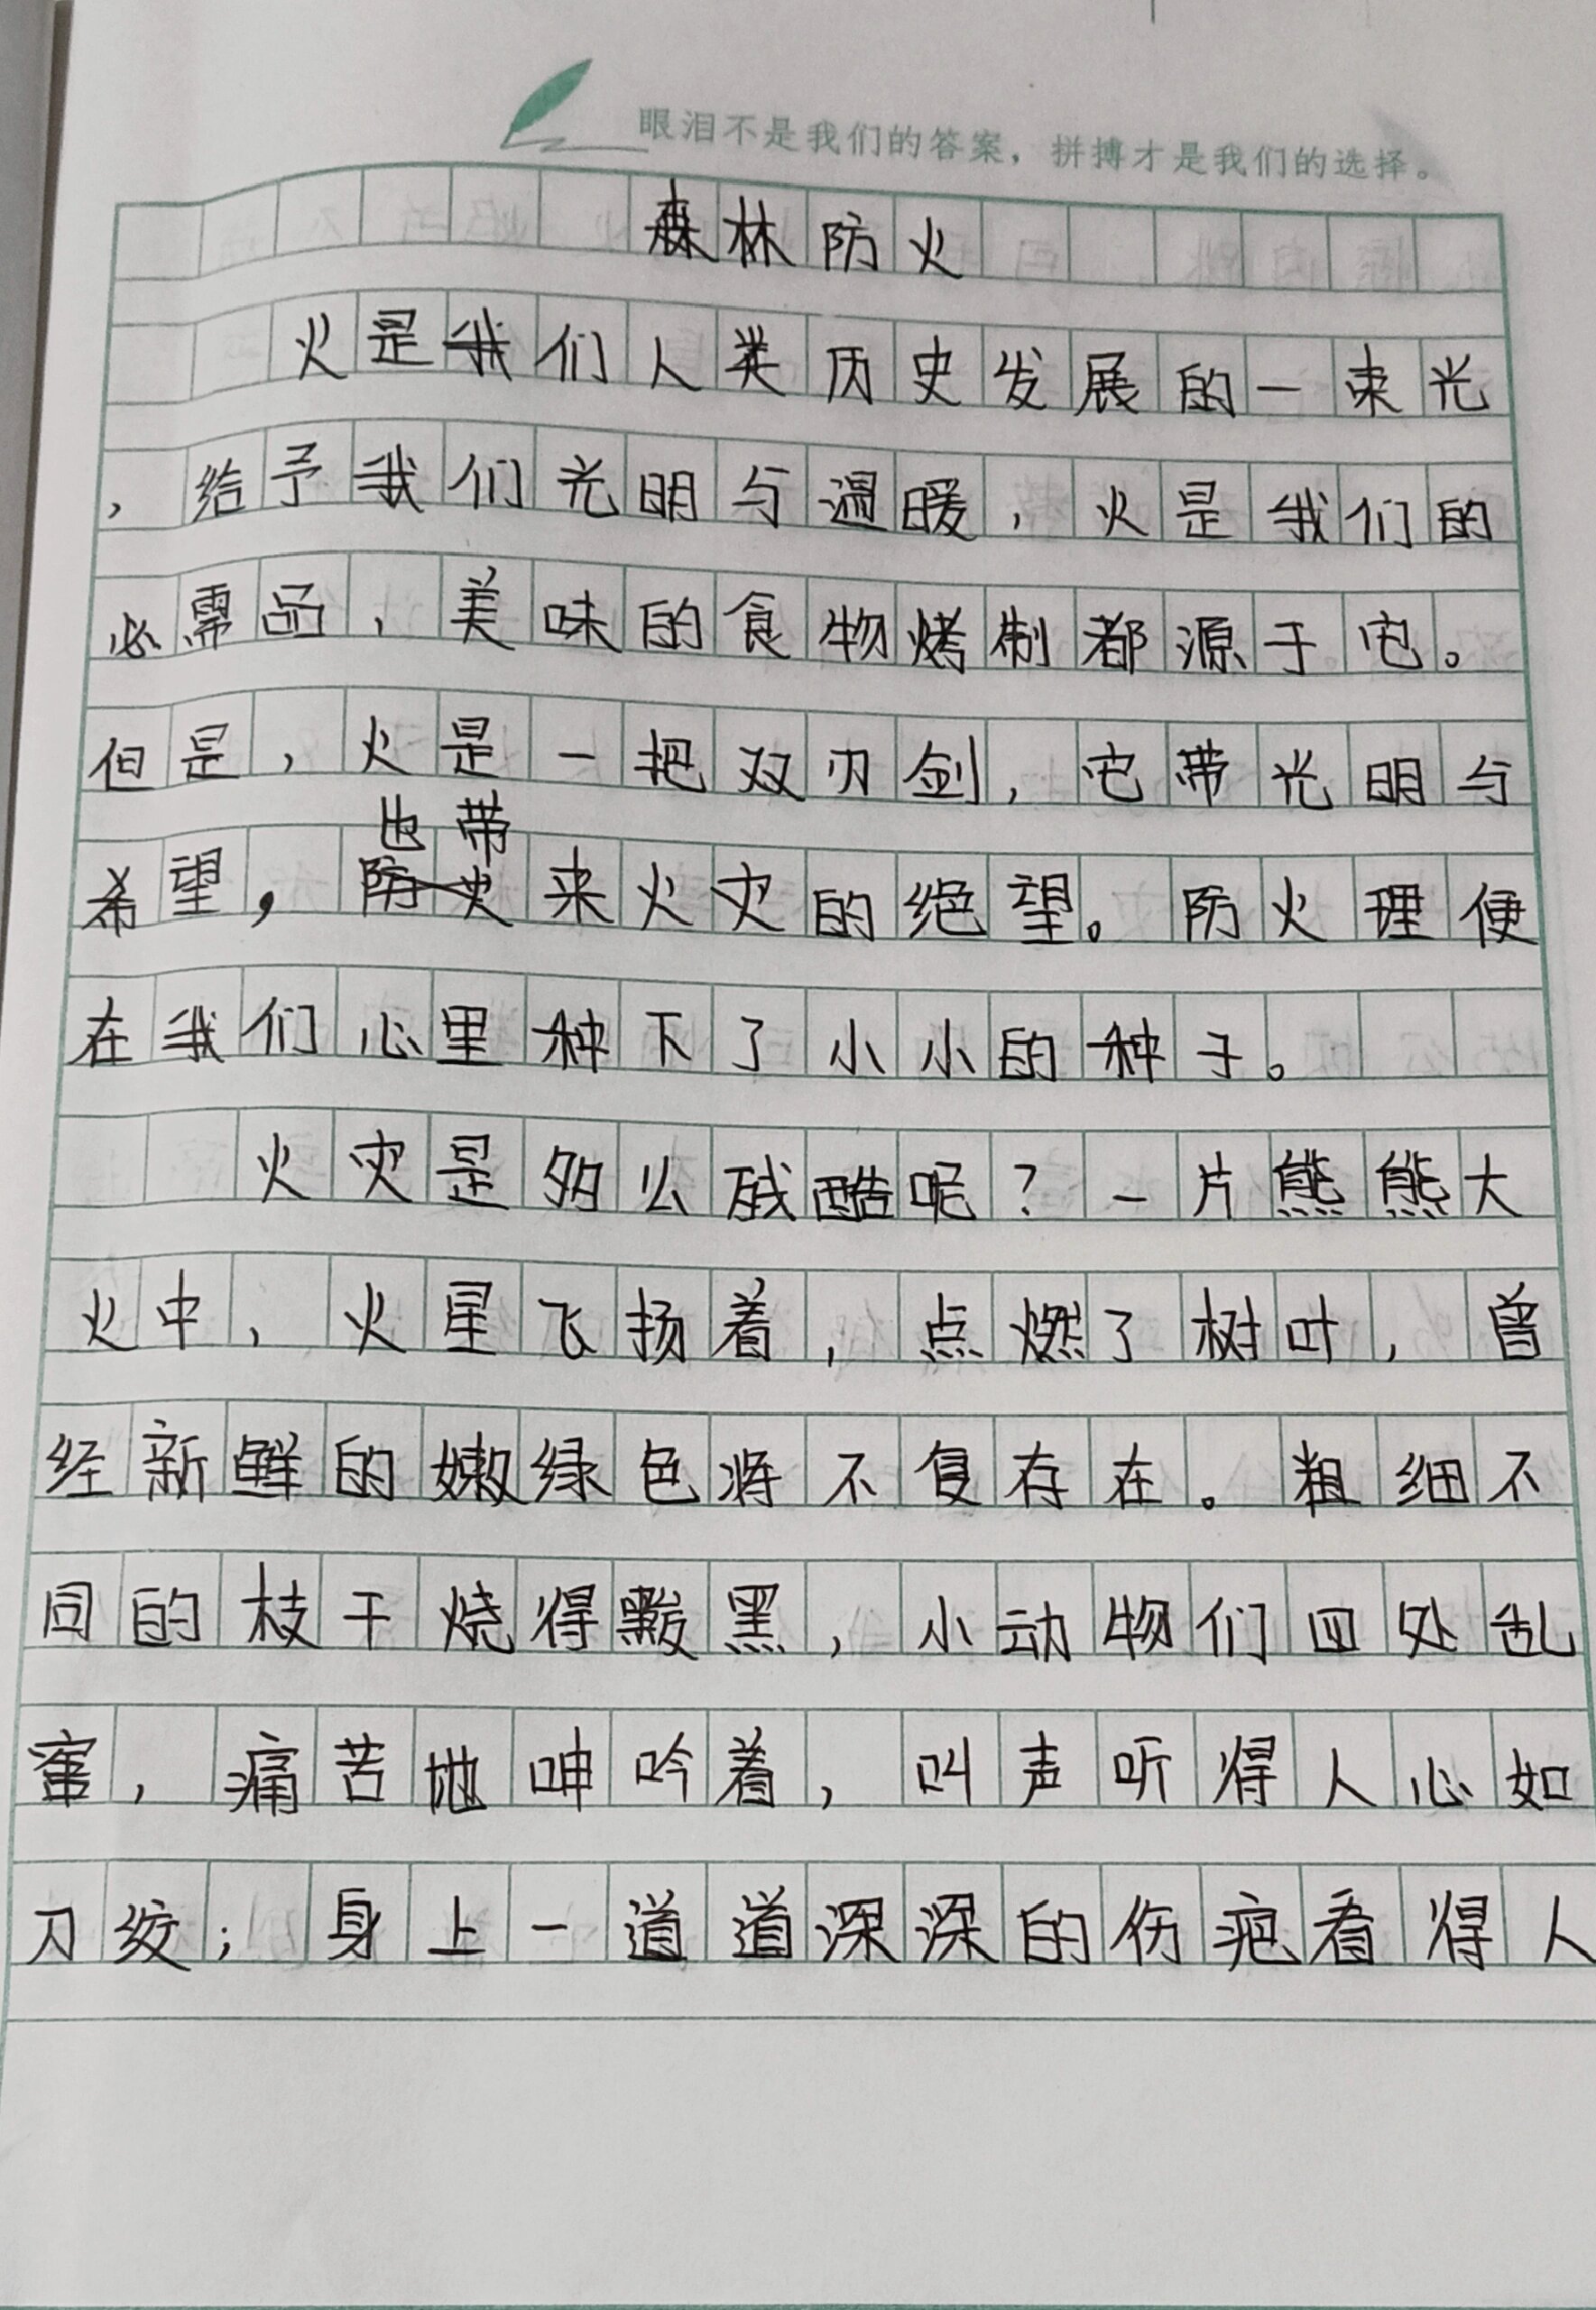 眼泪不是我们的答案，拼搏才是我们的选择。
森林防火
火是我们人类历史发展的一束光
，给予我们光明与温暖，火是我们的
必需品，美味的食物烤制都源于它。
但是，火是一把双刃剑，它带光明与
也带
希望，防火来火灾的绝望。防火理便
在我们心里种下了小小的种子。
火灾是多么残酷呢？一片熊熊大
火中，火星飞扬着，点燃了树叶，曾
经新鲜的嫩绿色将不复存在。粗细不
同的枝干烧得黢黑，小动物们四处乱
窜，痛苦地呻吟着，叫声听得人心如
刀绞；身上一道道深深的伤疤看得人